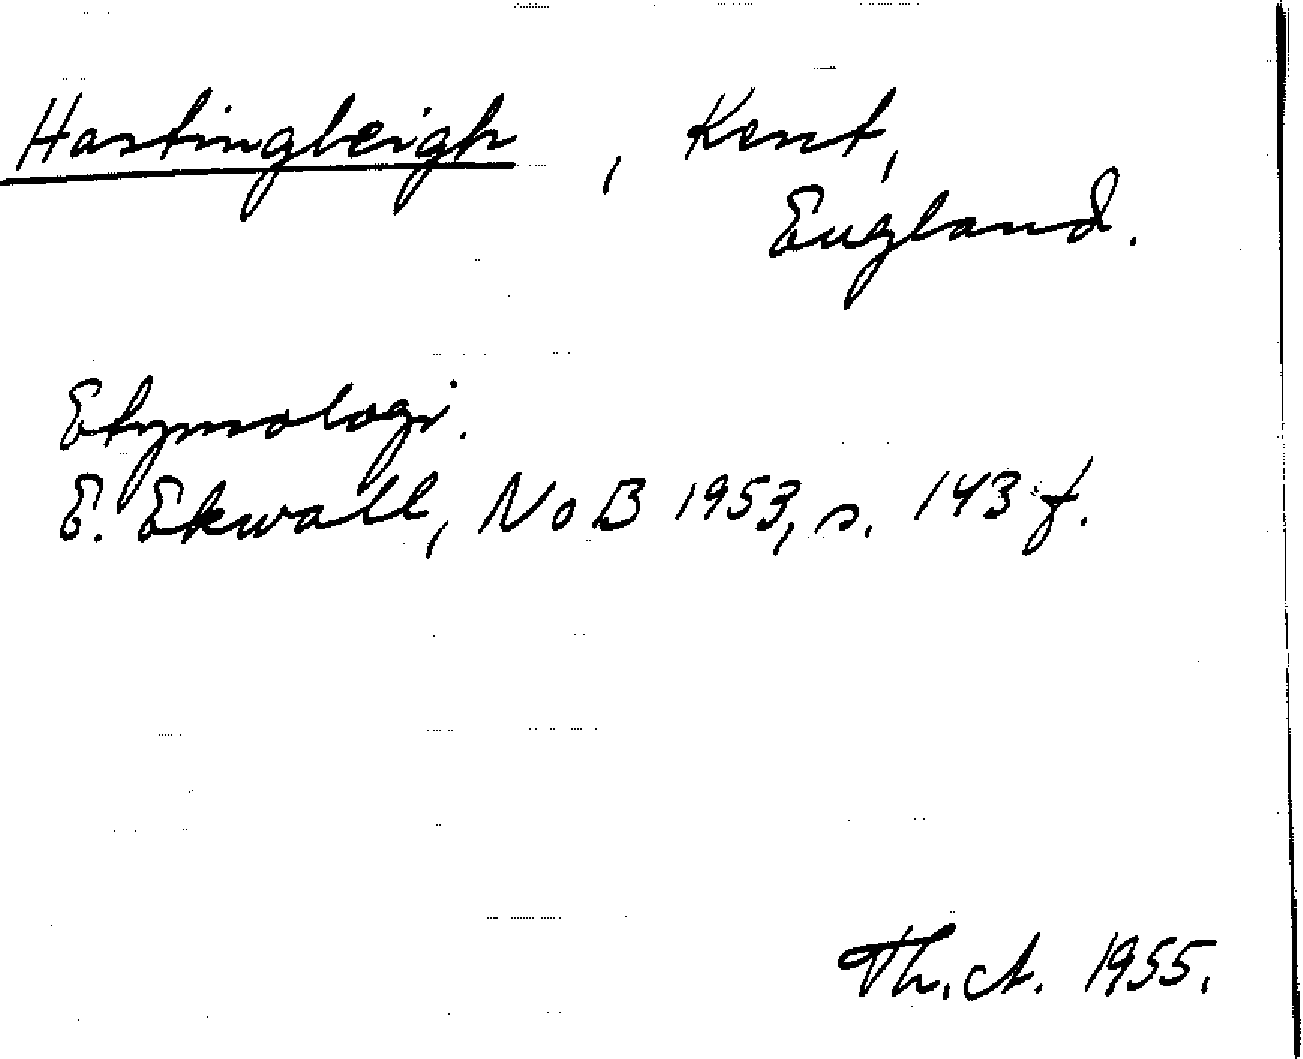 Hastingleigh, Kent,
England.
Etymologi.
E. Ekwall, NoB 1953, s. 143 f.
Th. A. 1955.